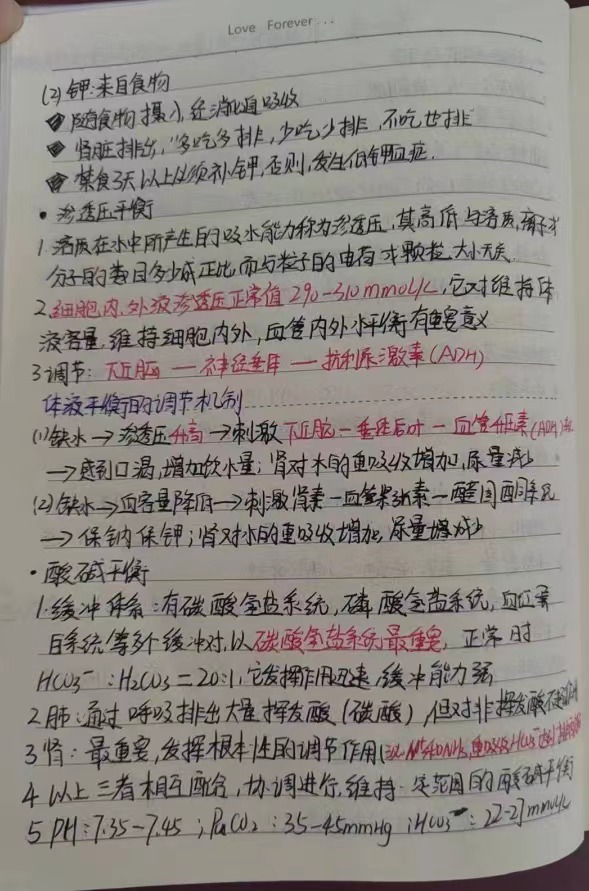 Love Forever...
(2) 钾:来自食物
◆ 随食物摄入,经消化道吸收
◆ 肾脏排出,"多吃多排,少吃少排,不吃也排"
◆ 禁食3天以上必须补钾,否则,发生低钾血症.
• 渗透压平衡
1.溶质在水中所产生的吸水能力称为渗透压,其高低与溶质,离子或
分子的数目多少成正比,而与粒子的电荷或颗粒大小无关.
2.细胞内,外液渗透压正常值290-310mmol/L,它对维持体
液容量,维持细胞内外,血管内外水平衡有重要意义
3调节:下丘脑—神经垂体—抗利尿激素(ADH)
体液平衡的调节机制
(1)缺水→渗透压升高→刺激下丘脑—垂体后叶—血管升压素(ADH)
→感到口渴,增加饮水量;肾对水的重吸收增加,尿量减少
(2)缺水→血容量降低→刺激肾素—血管紧张素—醛固酮系统
→保钠保钾;肾对水的重吸收增加,尿量减少
• 酸碱平衡
1.缓冲体系:有碳酸氢盐系统,磷酸氢盐系统,血红蛋
白系统等多个缓冲对,以碳酸氢盐系统最重要,正常时
HCO3⁻:H2CO3=20:1,它发挥作用迅速,缓冲能力强
2肺:通过呼吸排出大量挥发酸(碳酸),但对非挥发酸不
3肾:最重要,发挥根本性的调节作用(重吸收HCO3⁻
4以上三者相互配合,协调进行,维持一定范围的酸碱平衡
5 PH:7.35-7.45;PaCO2:35-45mmHg;HCO3⁻:22-27mmol/L